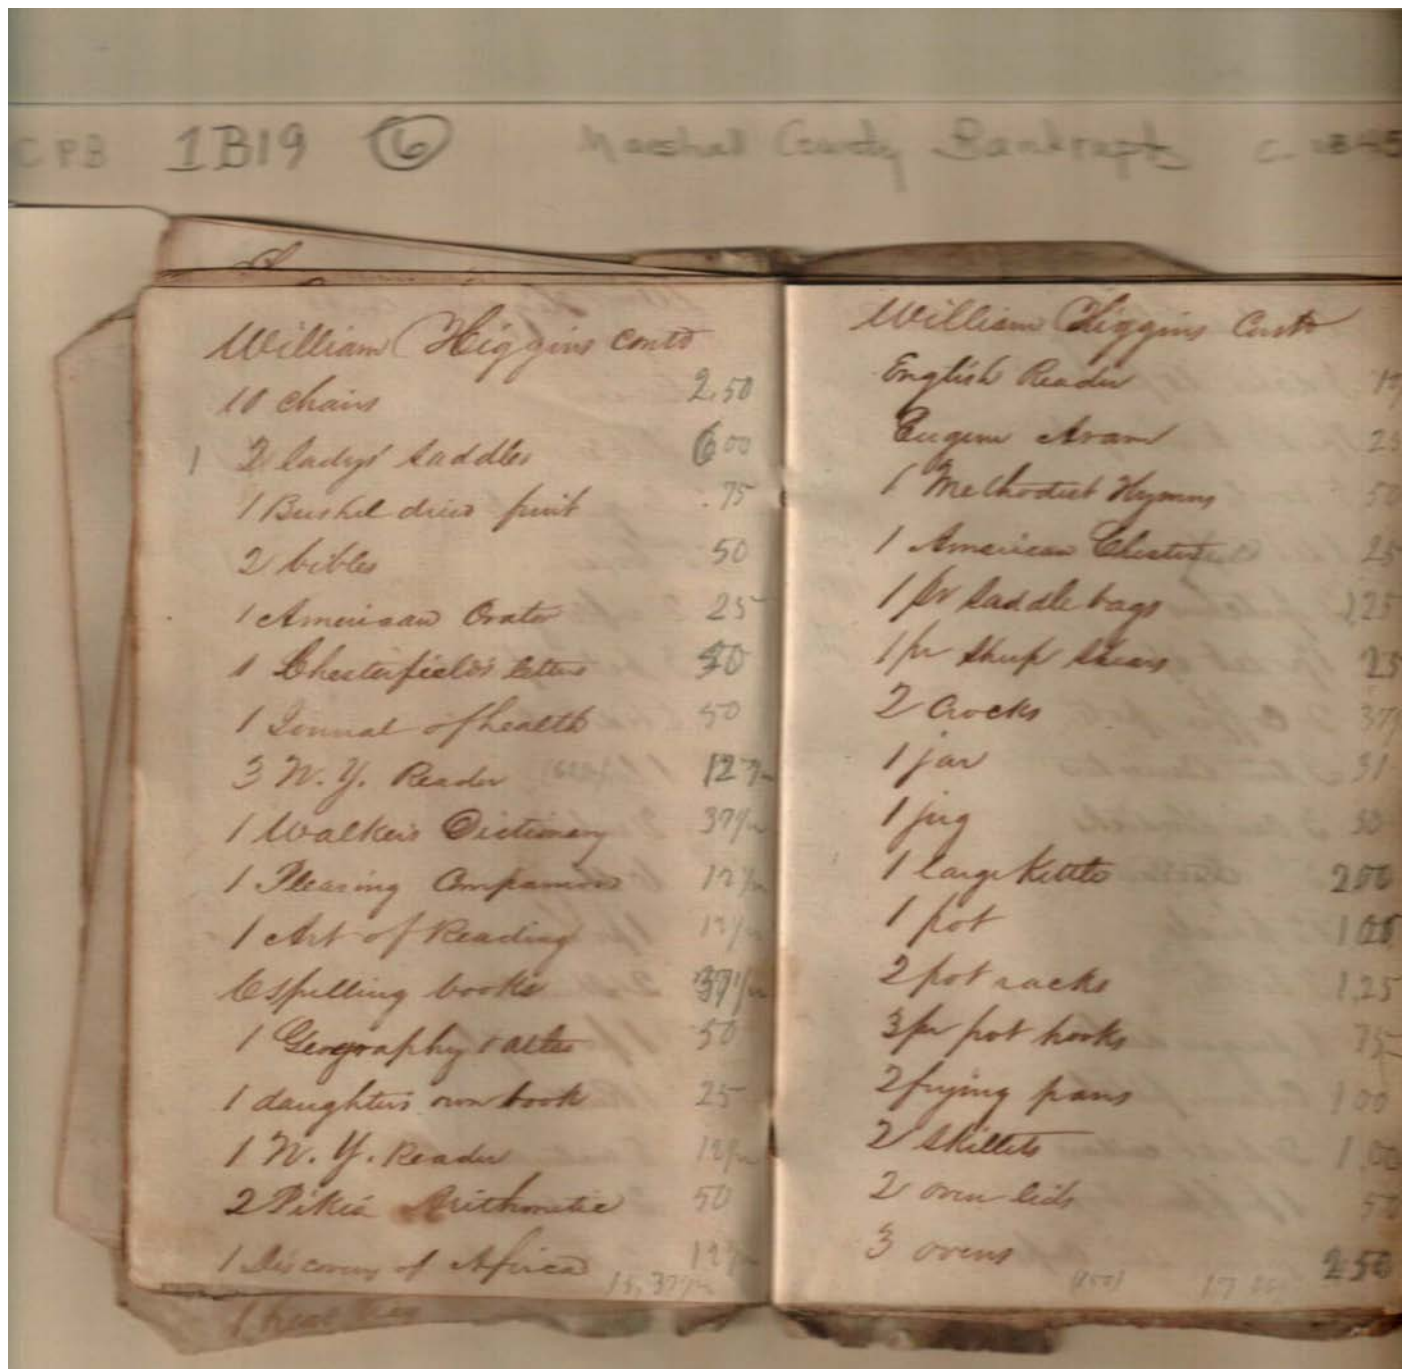 CPB 1B19 6 Marshal County Bankrupts C
William Higgins contd
10 chairs 2.50
1 2 ladys saddles 6 00
1 Bushel dried fruit .75
2 bibles 50
1 American Orator 25
1 Chesterfields letters 50
1 Journal of health 50
3 N. Y. Reader 12
1 Walkers Dictionary 37 1/2
1 Pleasing Companion 12 1/2
1 Art of Reading 12 1/2
6 spelling books 37 1/2
1 Geography & atlas 50
1 daughters own book 25
1 N. Y. Reader 12 1/2
2 Pikes Arithmetic 50
1 Discovery of Africa 12 1/2
15,37 1/2
William Higgins Contd
English Reader
Eugene Aram 25
1 Methodist Hymns 50
1 American 25
1 pr saddle bags 125
1 pr Sheep Shears 25
2 Crocks 37
1 jar 31
1 jug 50
1 large Kettle 200
1 pot 100
2 pot racks 1.25
3 pr pot hooks 75
2 frying pans 100
2 Skillets 1.00
2 oven lids 50
3 ovens 2.50
17